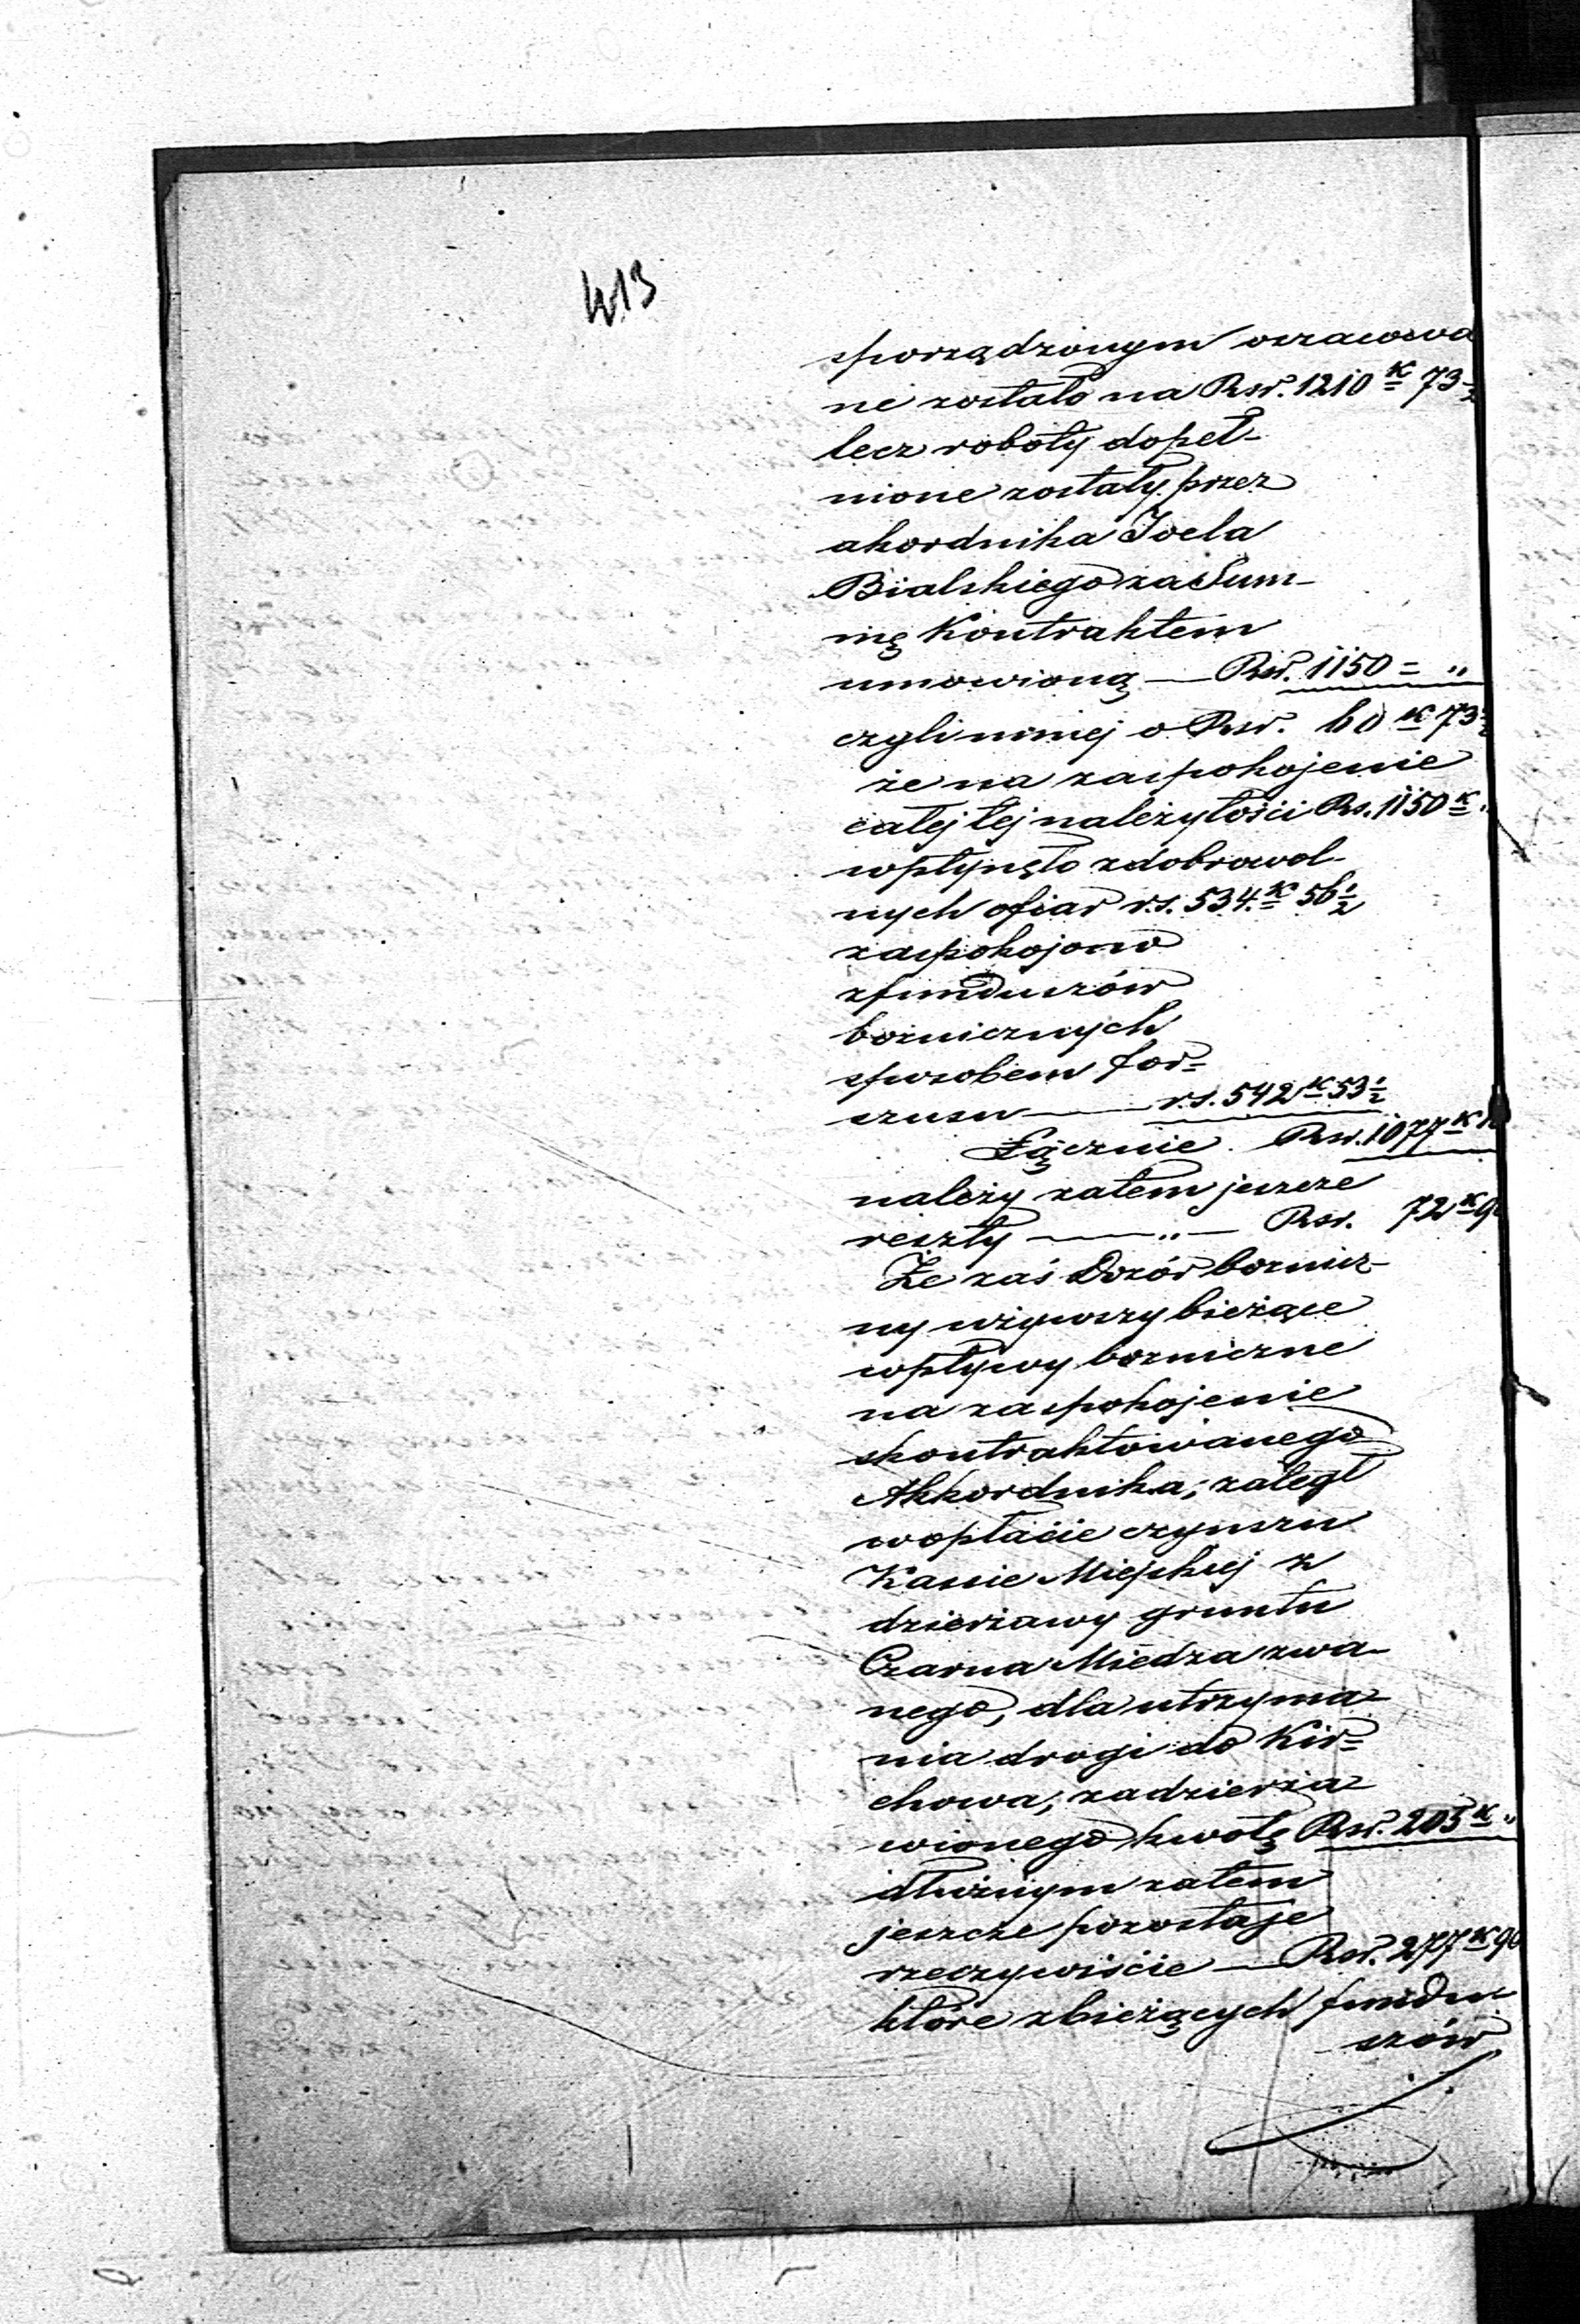 413
sporządzonym oszacowa
ne zostało na Rsr. 1210 k 73½
lecz roboty dopeł-
nione zostały przez
akordnika Joela
Bialskiego za Sum-
mę Kontraktem
umowioną — Rsr. 1150 = "
czyli mniej o Rsr. 60 k 73½
że na zaspokojenie
całej tej należytości Rs. 1150 k "
wpłynęło z dobrowol-
nych ofiar r.s. 534. k 56½
zaspokojono
z funduszów
bożnicznych
sposobem for=
szusu — r.s. 542 k 53½
Łącznie Rsr. 1077 k 10
należy zatem jeszcze
reszty — " — Rsr. 72 k 90
Że zaś Dozór bożnicz-
ny używszy bieżące
wpływy bożniczne
na zaspokojenie
skontraktowanego
Akkordnika, zaległ
w opłacie czynszu
Kassie Miejskiej z
dzierżawy gruntu
Czarna Miedza zwa-
nego, dla utrzyma-
nia drogi do Kir=
chowa, zadzierża-
wionego kwotę Rsr. 205 k "
dłużnym zatem
jeszcze pozostaje
rzeczywiście — Rsr. 277 k 90
które z bieżących fundu
szów